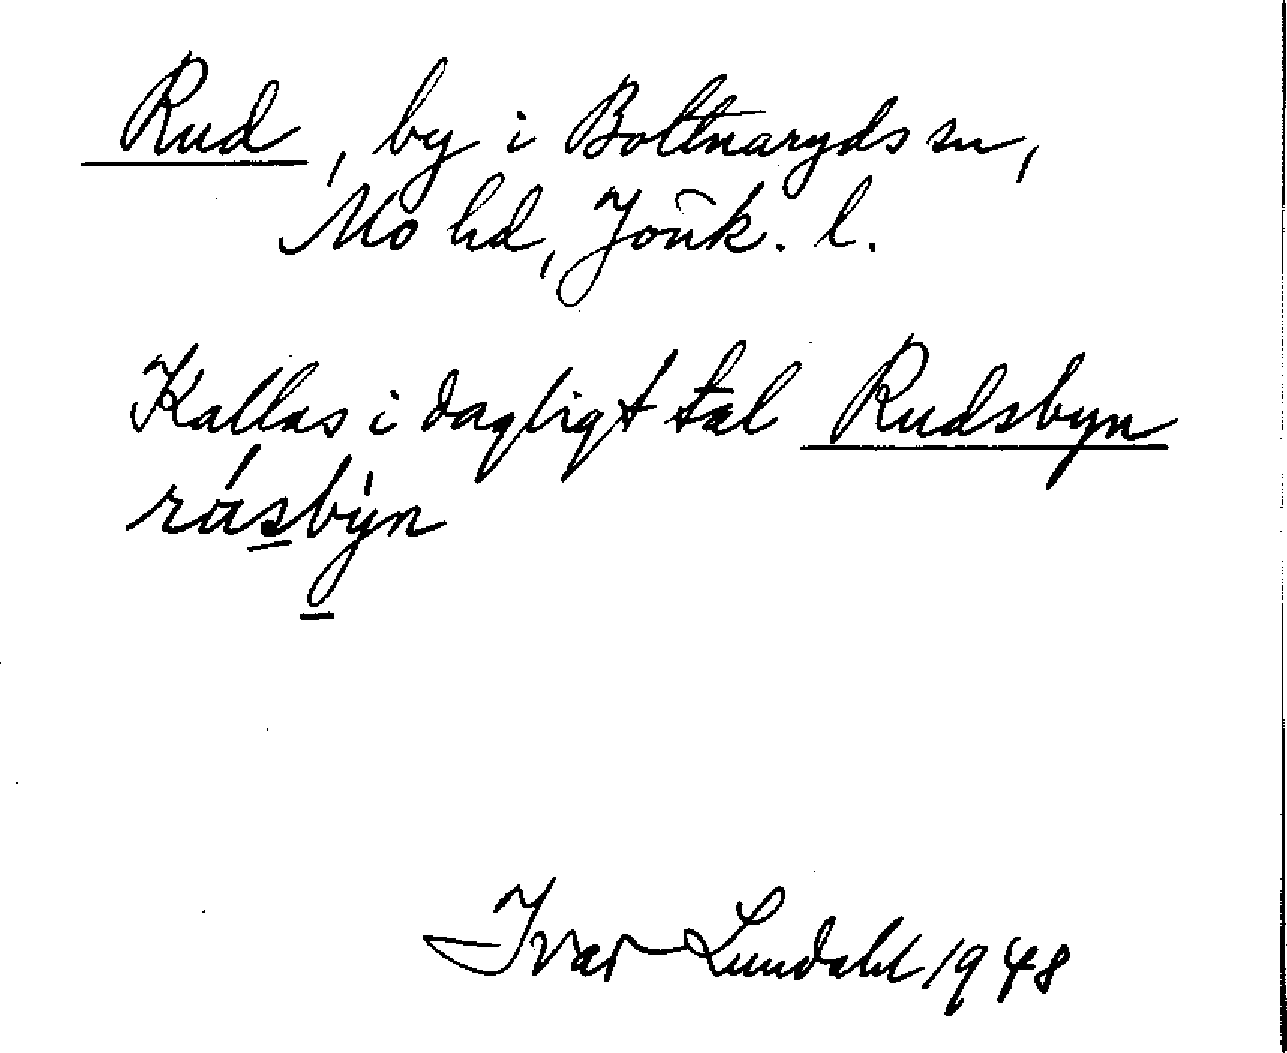 Rud, by i Bottnaryds sn,
Mo hd, Jönk. l.
Kallas i dagligt tal Rudsbyn
rásbỳn
Ivar Lundahl 1948